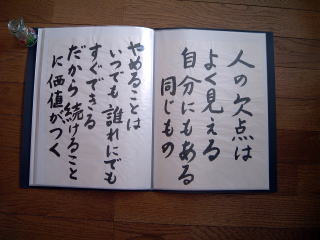 人の欠点は
よく見える
自分にもある
同じもの
やめることは
いつでも誰れにでも
すぐできる
だから続けること
に価値がつく